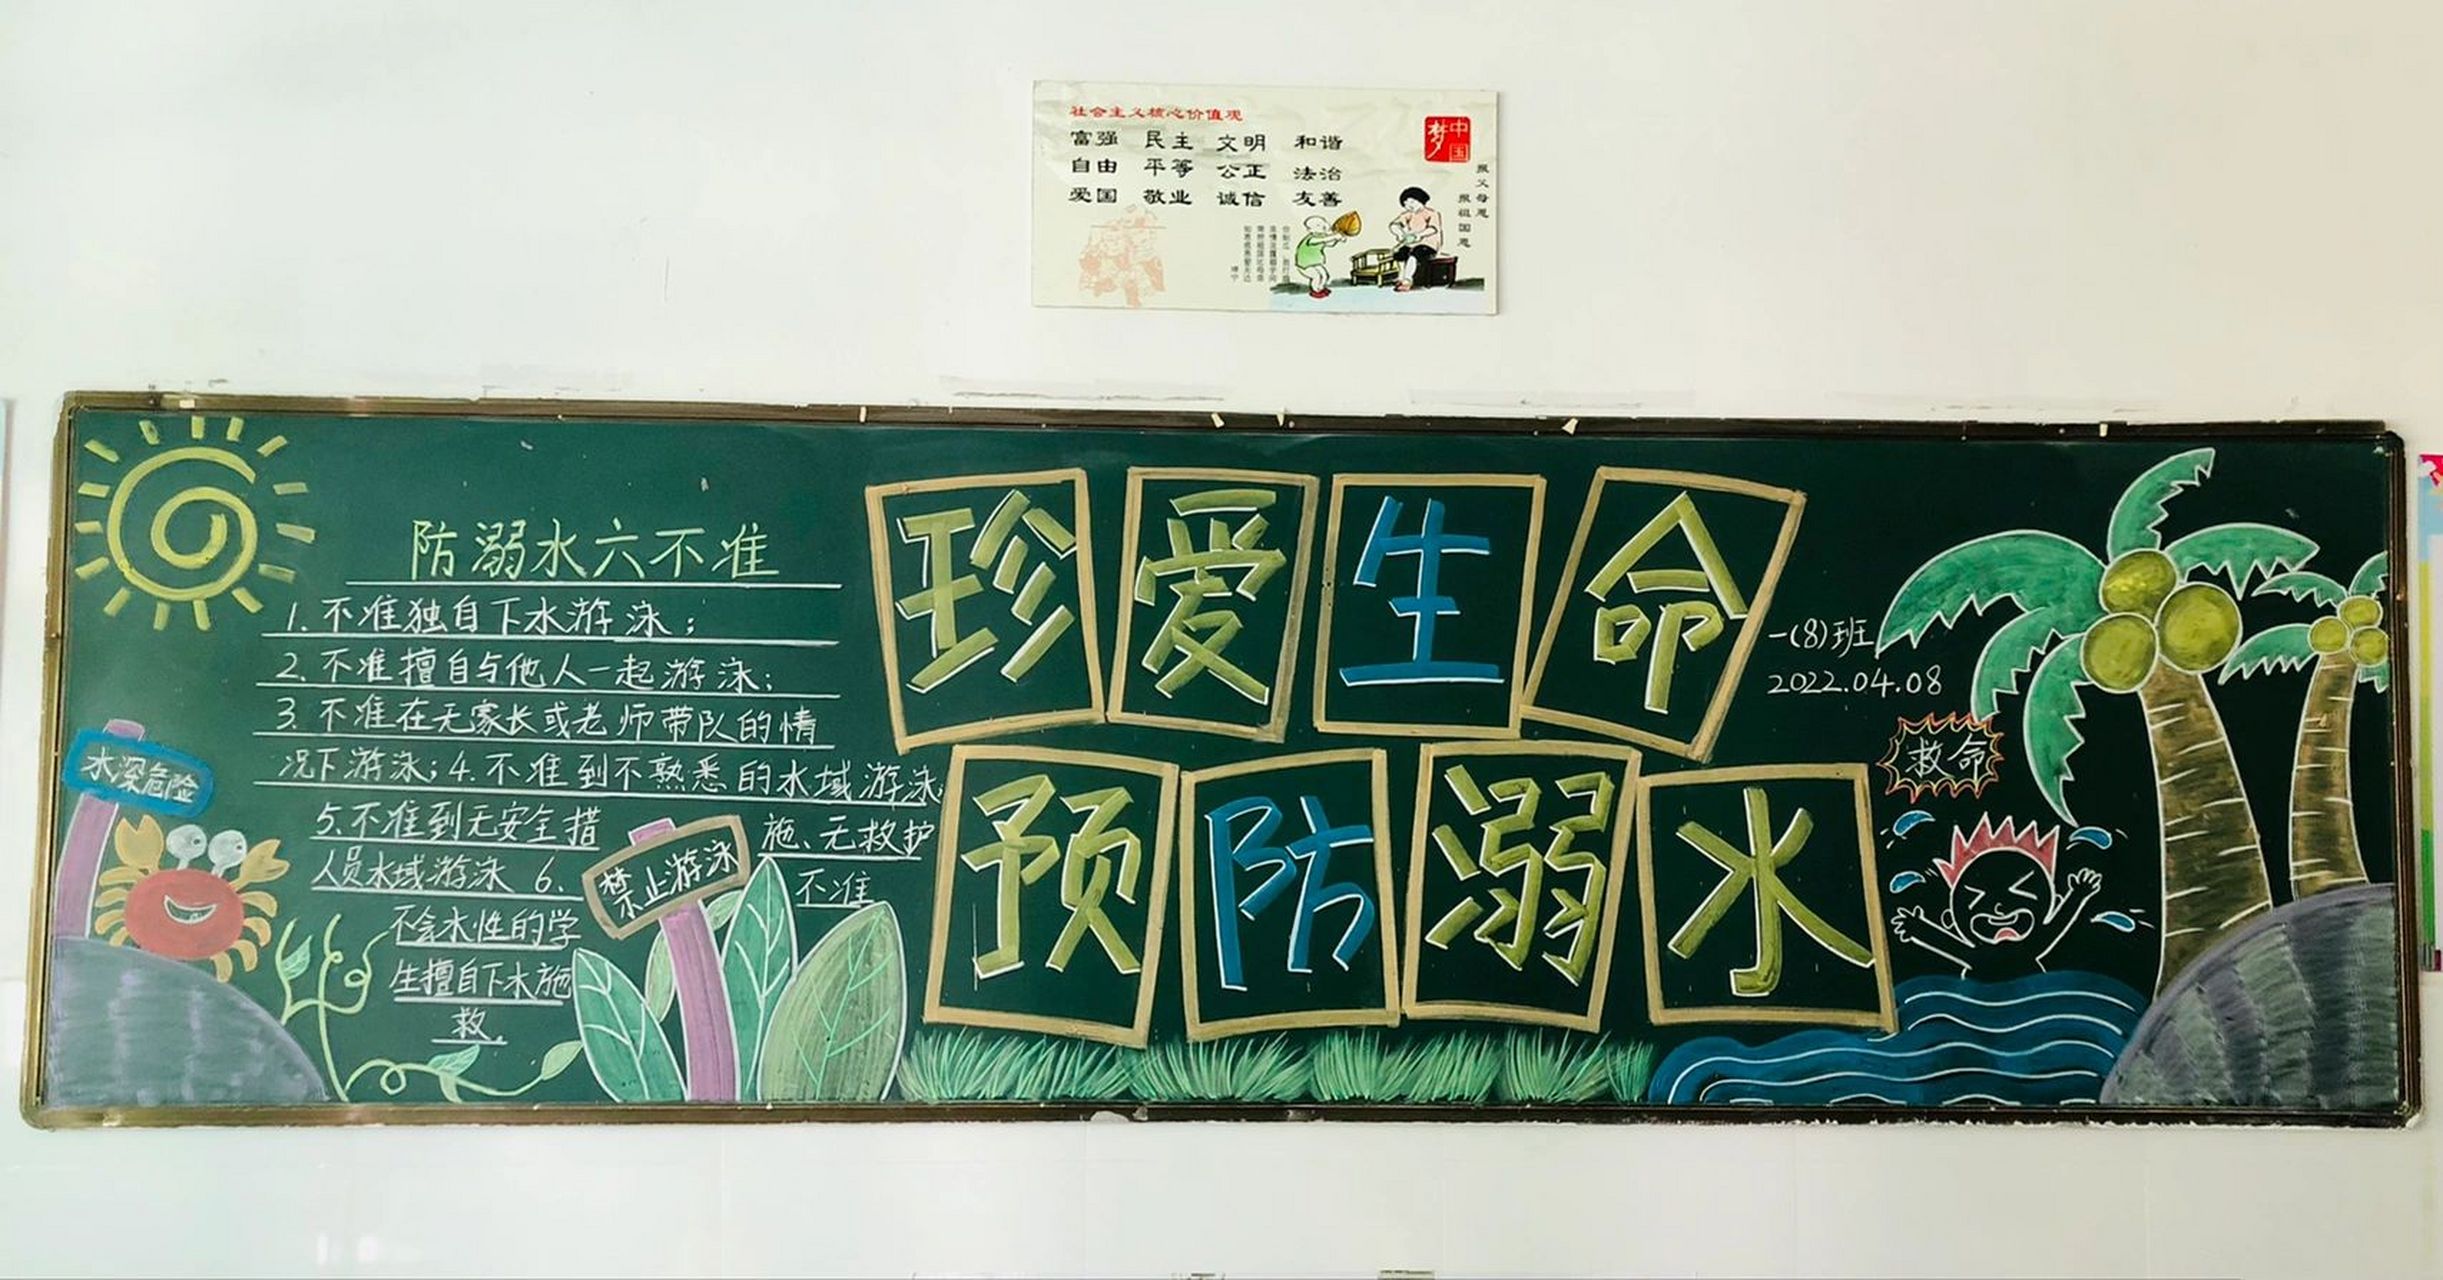 社会主义核心价值观
富强 民主 文明 和谐
自由 平等 公正 法治
爱国 敬业 诚信 友善
中国梦
报父母恩
报祖国恩
防溺水六不准
1.不准独自下水游泳;
2.不准擅自与他人一起游泳;
3.不准在无家长或老师带队的情
况下游泳;4.不准到不熟悉的水域游泳;
5.不准到无安全措施、无救护
人员水域游泳 6.不准
不会水性的学
生擅自下水施
救。
水深危险
禁止游泳
珍爱生命
预防溺水
一(8)班
2022.04.08
救命